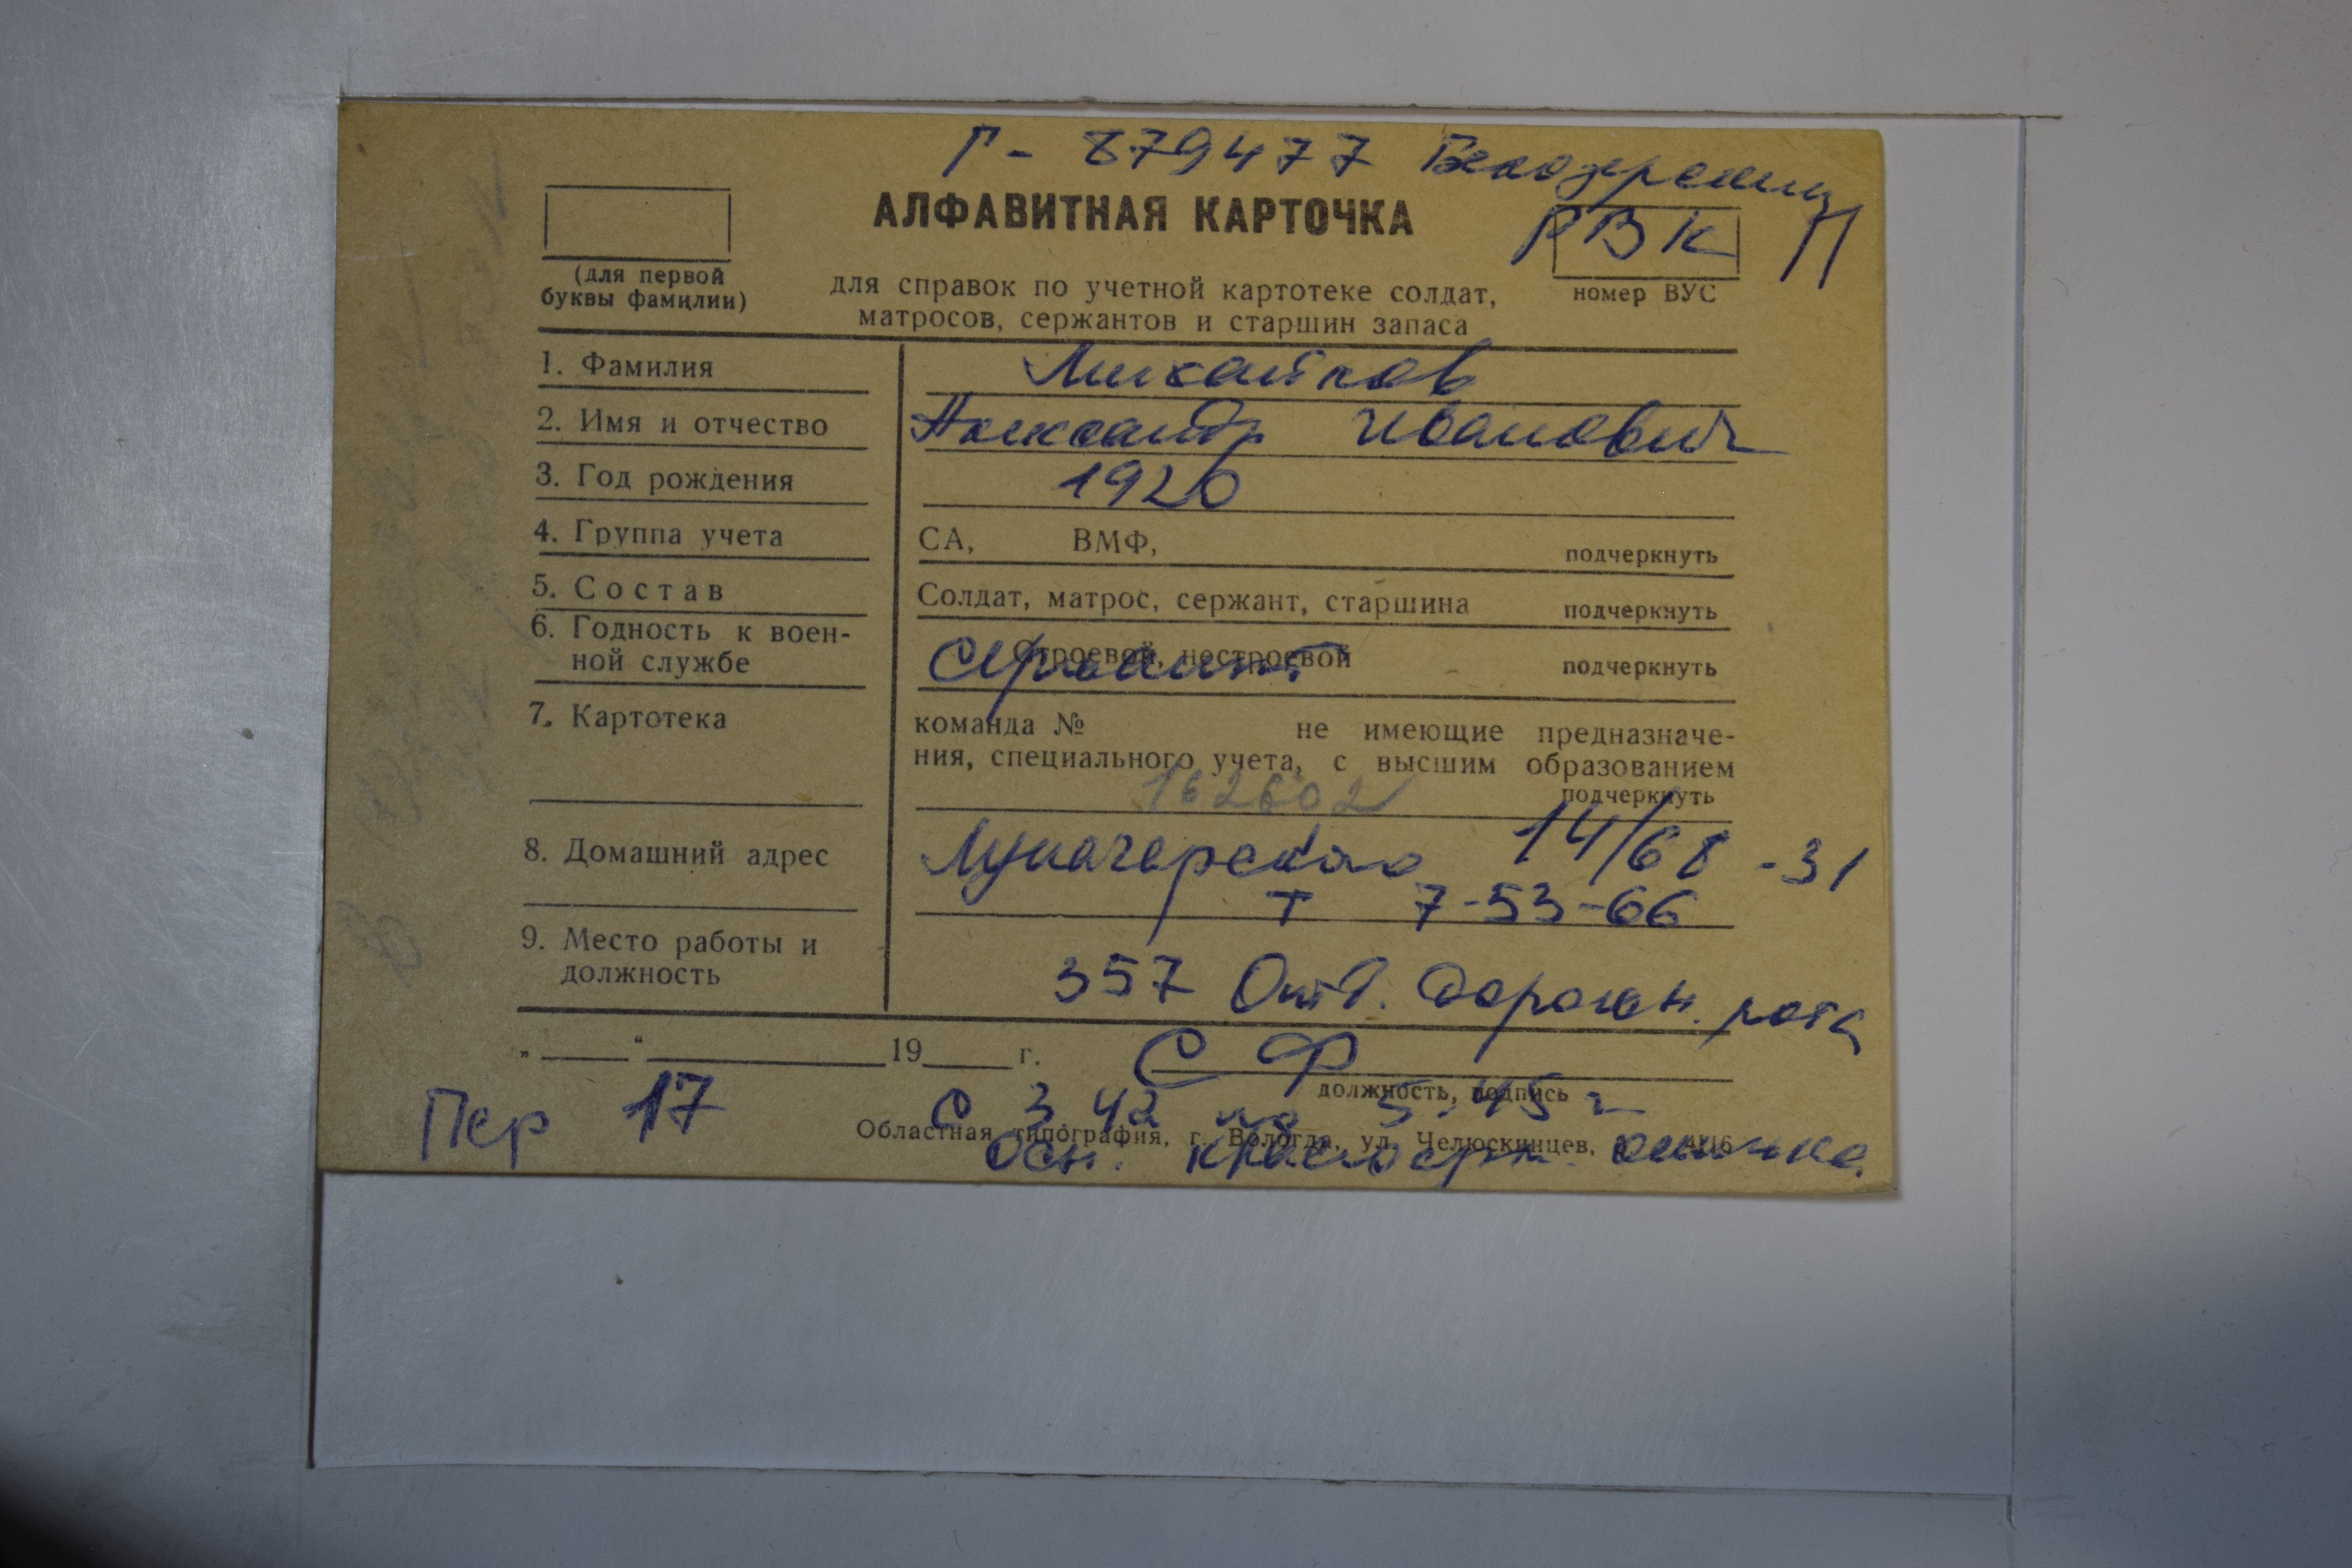 Г- 879477 Белозерским
РВК П
АЛФАВИТНАЯ КАРТОЧКА
(для первой буквы фамилии)
для справок по учетной картотеке солдат,
матросов, сержантов и старшин запаса
номер ВУС
1. Фамилия
2. Имя и отчество Александр Иванович
3. Год рождения 1920
4. Группа учета СА, ВМФ, подчеркнуть
5. Состав Солдат, матрос, сержант, старшина подчеркнуть
6. Годность к воен-
ной службе Строевой, нестроевой подчеркнуть
Сержант
7. Картотека команда № не имеющие предназначе-
ния, специального учета, с высшим образованием
подчеркнуть
162602
8. Домашний адрес Луначарского 14/68 -31
т 7-53-66
9. Место работы и
должность 357 Отд. дорожн. рота
„ “ 19 г. СФ
должность, подпись
Пер 17 С 3 42 по 5.45 г
Областная типография, г. Вологда, ул. Челюскинцев,
Осн. красноарм. книжка